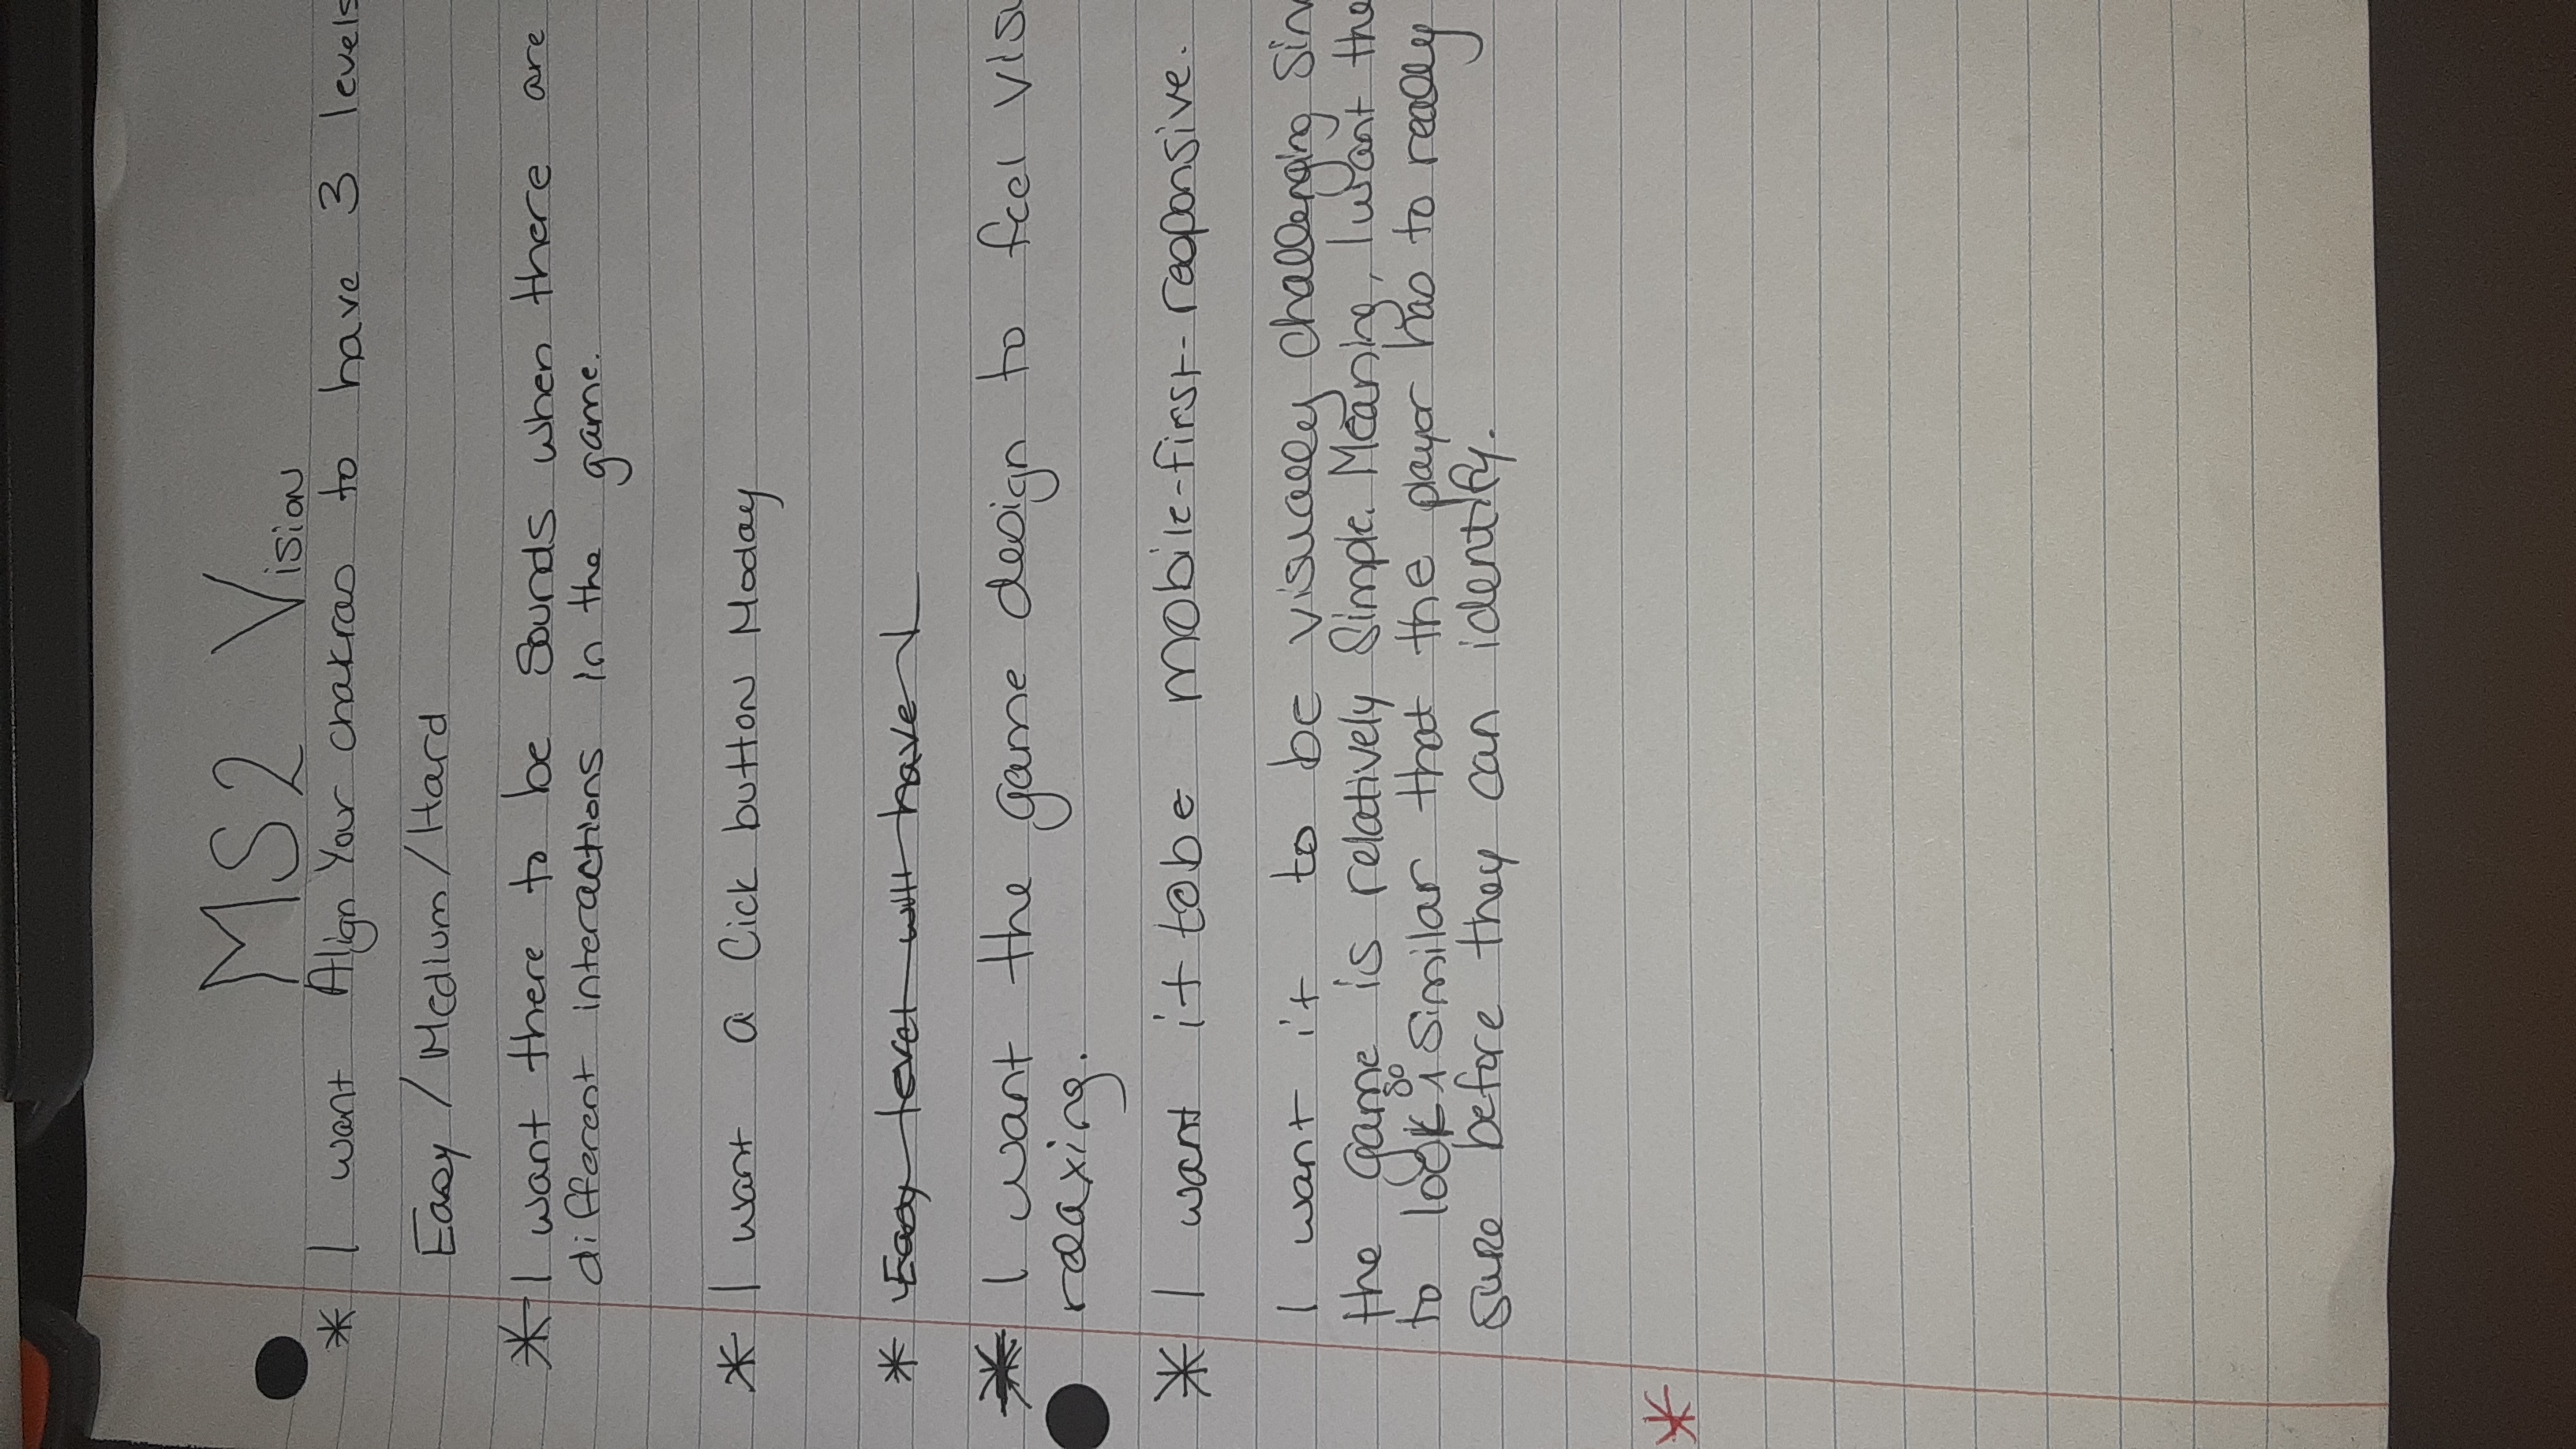 MS2 Vision
* I want Align Your chakras to have 3 levels
Easy / Medium / Hard
* I want there to be Sounds when there are
different interactions in the game.
* I want a Cick button Moday
* Easy level will have 1
* I want the game design to feel
relaxing.
* I want it to be mobile-first-responsive.
I want it to be visually challenging
the game is relatively Simple. Meaning, I want the
to look so similar that the player has to really
sure before they can identify.
*